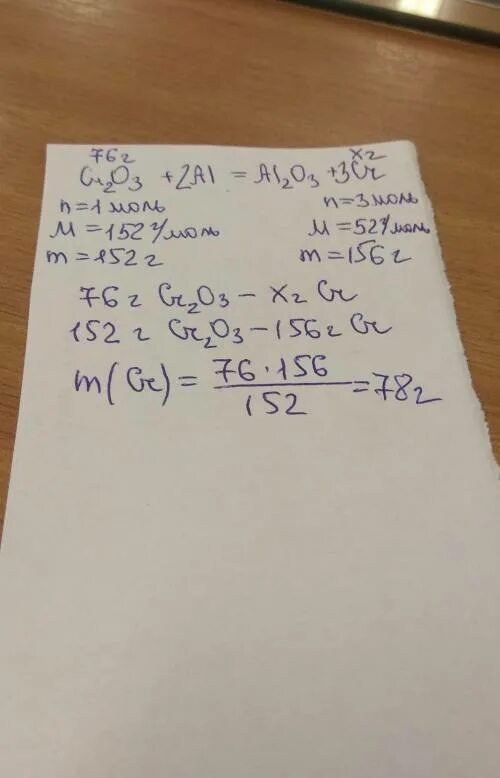 76г хг
Cr₂O₃ + 2Al = Al₂O₃ + 3Cr
n = 1 моль n = 3 моль
M = 152 г/моль M = 52 г/моль
m = 152 г m = 156 г
76 г Cr₂O₃ – хг Cr
152 г Cr₂O₃ – 156 г Cr
m(Cr) = 76·156 / 152 = 78г